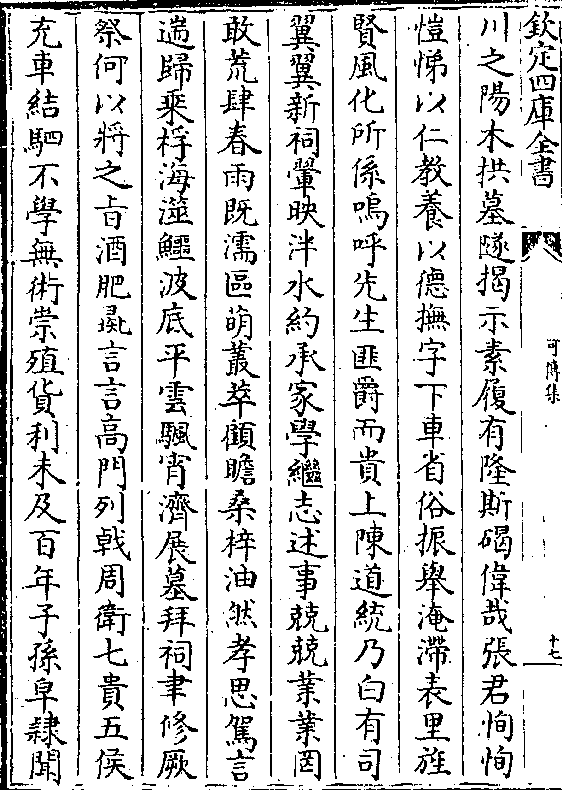 欽定四庫全書
可傳集
十七
川之陽木拱墓隧揭示素履有隆斯碣偉哉張君恂恂
愷悌以仁教養以德撫字下車省俗振舉淹滯表里旌
賢風化所係嗚呼先生匪爵而貴上陳道統乃白有司
翼翼新祠翬映泮水約承家學繼志述事兢兢業業罔
敢荒肆春雨既濡區萌叢萃顧瞻桑梓油然孝思駕言
遄歸乘桴海澨鱷波底平雲颿宵濟展墓拜祠聿修厥
祭何以將之旨酒肥彘言言高門列戟周衛七貴五侯
充車結駟不學無術崇殖貨利未及百年子孫皁隸聞